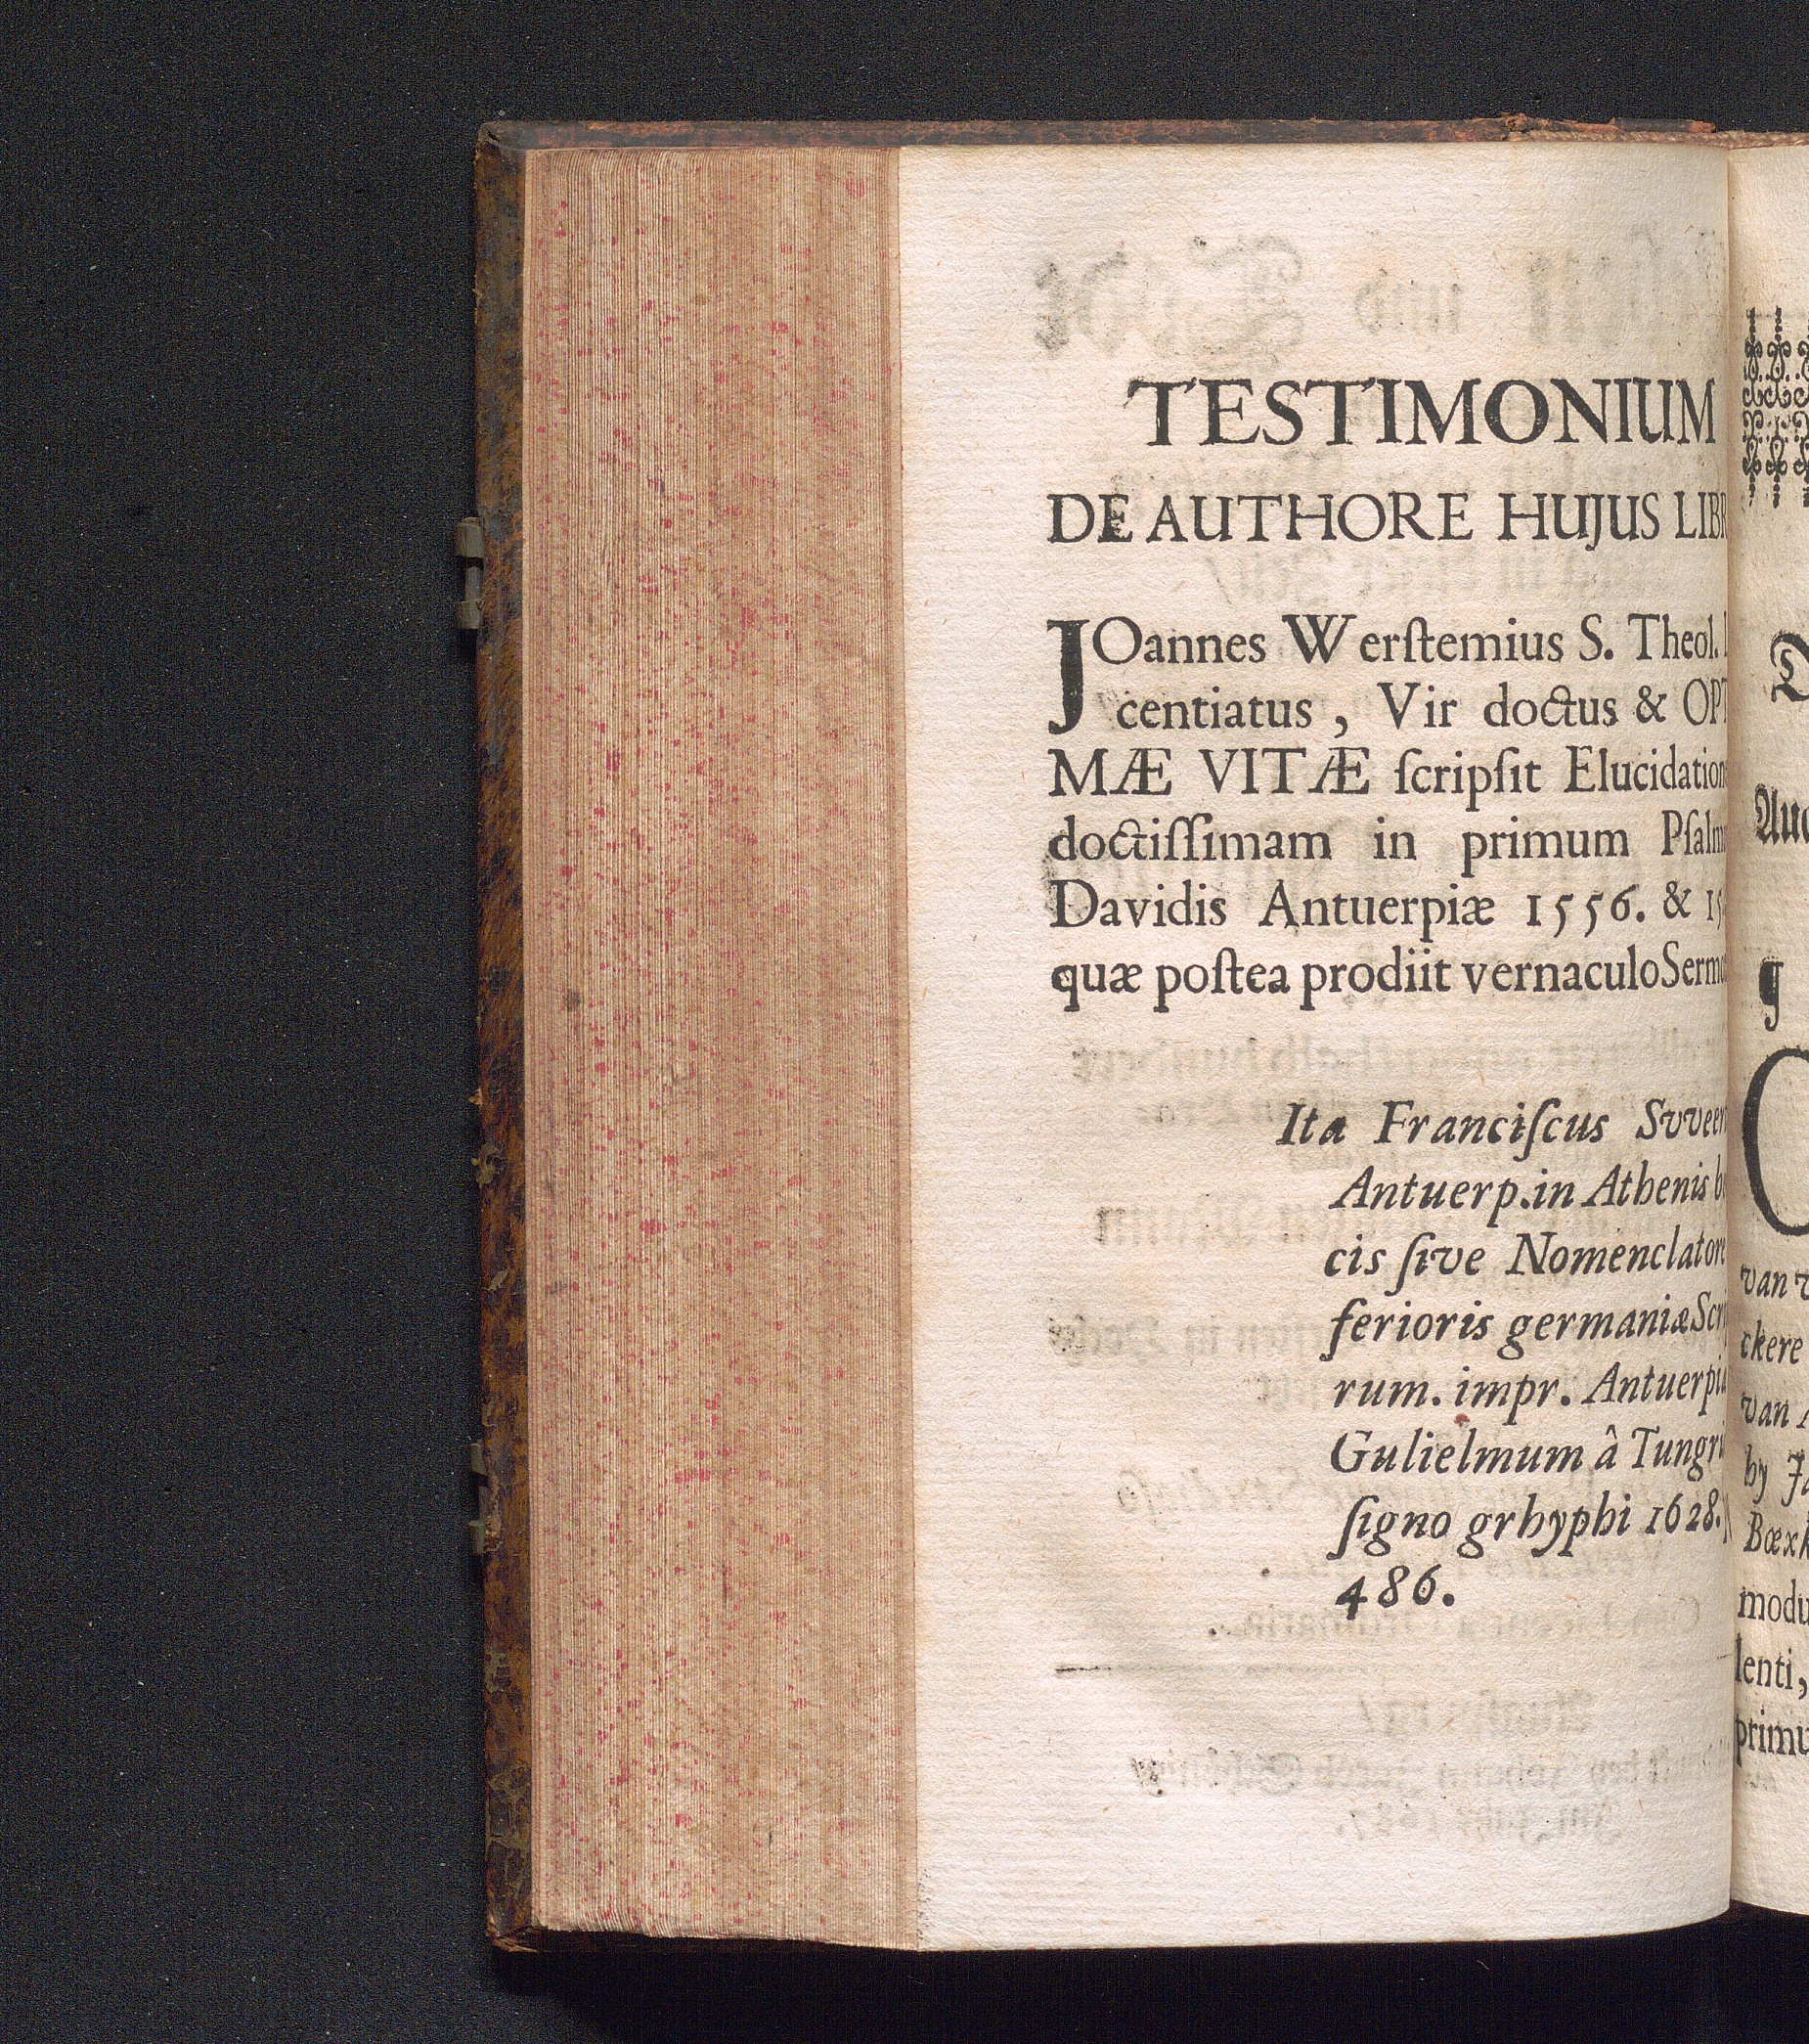 TESTIMONIUM
DE AUTHORE HUJUS LIBR
JOannes Werſtemius S. Theol.
centiatus, Vir doctus & OPT
MÆ VITÆ ſcripſit Elucidation
doctiſſimam in primum Pſalm
Davidis Antuerpiæ 1556. &
quæ poſtea prodiit vernaculo Sermo
Ita Franciſcus Svveer
Antuerp. in Athenis
cis ſive Nomenclatore
ferioris germaniæ Scri
rum. impr. Antuerpiæ
Gulielmum â Tungri
ſigno grhyphi 1628.
486.
van
ckere
van
by
Bœxk
modu
lenti,
primu